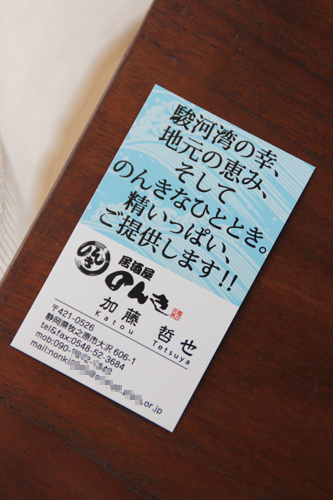 駿河湾の幸、
地元の恵み、
そして
のんきなひととき。
精いっぱい、
ご提供します!!
のんき 居酒屋
のんき
加藤 哲也
Katou Tetsuya
〒421-0526
静岡県牧之原市大沢606-1
tel&fax:0548-52-3684
mob:090-
mail:nonki
.or.jp